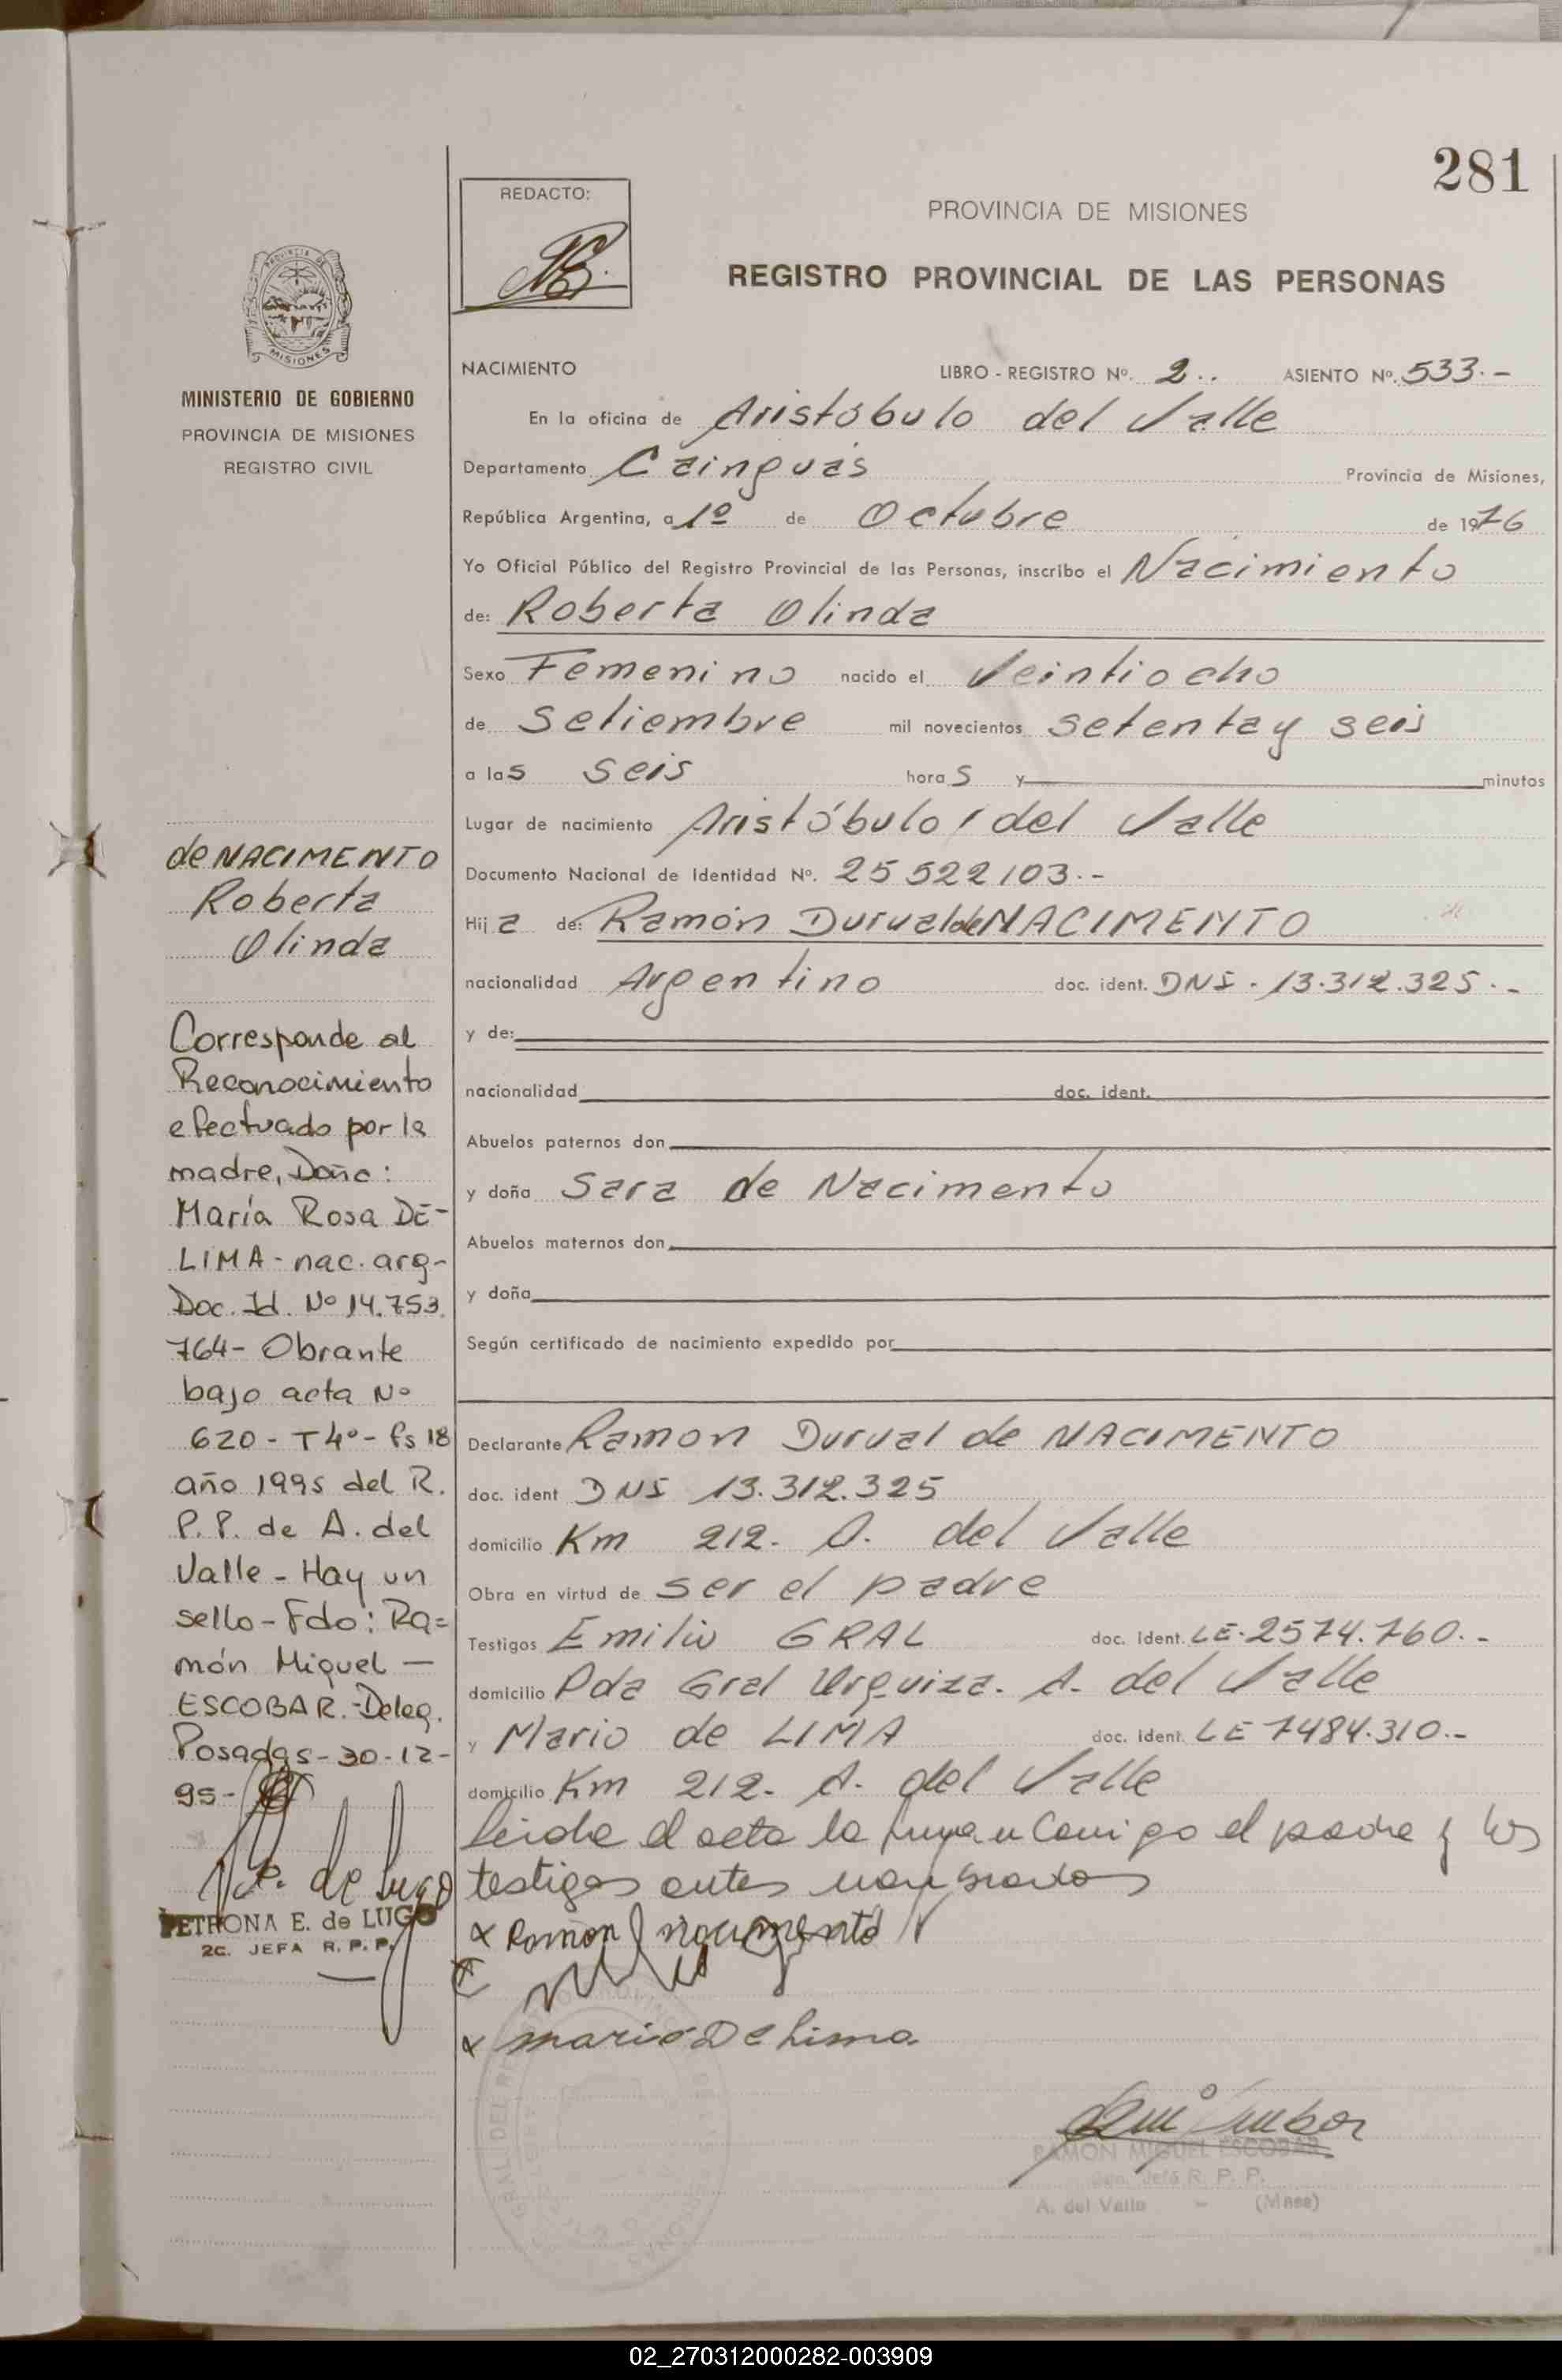 281
REDACTO:
PROVINCIA DE MISIONES
REGISTRO PROVINCIAL DE LAS PERSONAS
MISIONES
MINISTERIO DE GOBIERNO
PROVINCIA DE MISIONES
REGISTRO CIVIL
de NACIMENTO
Roberta
Olinda
Corresponde al
Reconocimiento
efectuado por la
madre, Doña:
María Rosa DE-
LIMA - nac. arg-
Doc. Id. Nº 14.753.
764- Obrante
bajo acta Nº
620 - T 4º - fs 18
año 1995 del R.
P.P. de A. del
Valle - Hay un
sello - Fdo: Ra=
món Miguel —
ESCOBAR.-Deleg.
Posadas - 30-12-
95-
de Lugo
PETRONA E. de LUGO
2c. JEFA R. P. P.
NACIMIENTO LIBRO - REGISTRO Nº. 2.. ASIENTO Nº. 533.-
En la oficina de Aristóbulo del Valle
Departamento Cainguás Provincia de Misiones,
República Argentina, a 1º de Octubre de 1976
Yo Oficial Público del Registro Provincial de las Personas, inscribo el Nacimiento
de: Roberta Olinda
Sexo Femenino nacido el Veintiocho
de Setiembre mil novecientos setenta y seis
a las seis horas y minutos
Lugar de nacimiento Aristóbulo del Valle
Documento Nacional de Identidad Nº. 25522103.-
Hija de: Ramón Durval de NACIMENTO
nacionalidad Argentino doc. ident. DNI. 13.312.325.-
y de:
nacionalidad doc. ident.
Abuelos paternos don
y doña Sara de Nacimento
Abuelos maternos don
y doña
Según certificado de nacimiento expedido por
Declarante Ramon Durval de NACIMENTO
doc. ident DNI 13.312.325
domicilio Km 212. A. del Valle
Obra en virtud de ser el padre
Testigos Emilio GRAL doc. ident. LE.2574.760.-
domicilio Pda Gral Urquiza. A. del Valle
y Mario de LIMA doc. ident. LE 7484.310.-
domicilio Km 212. A. del Valle
Leida el acta la firman conmigo el padre y los
testigos antes nombrados
x Ramon nacimento
x mario De Lima
RAMON MIGUEL ESCOBAR
Jefe R. P. P.
A. del Valle - (Mnes)
02_270312000282-003909